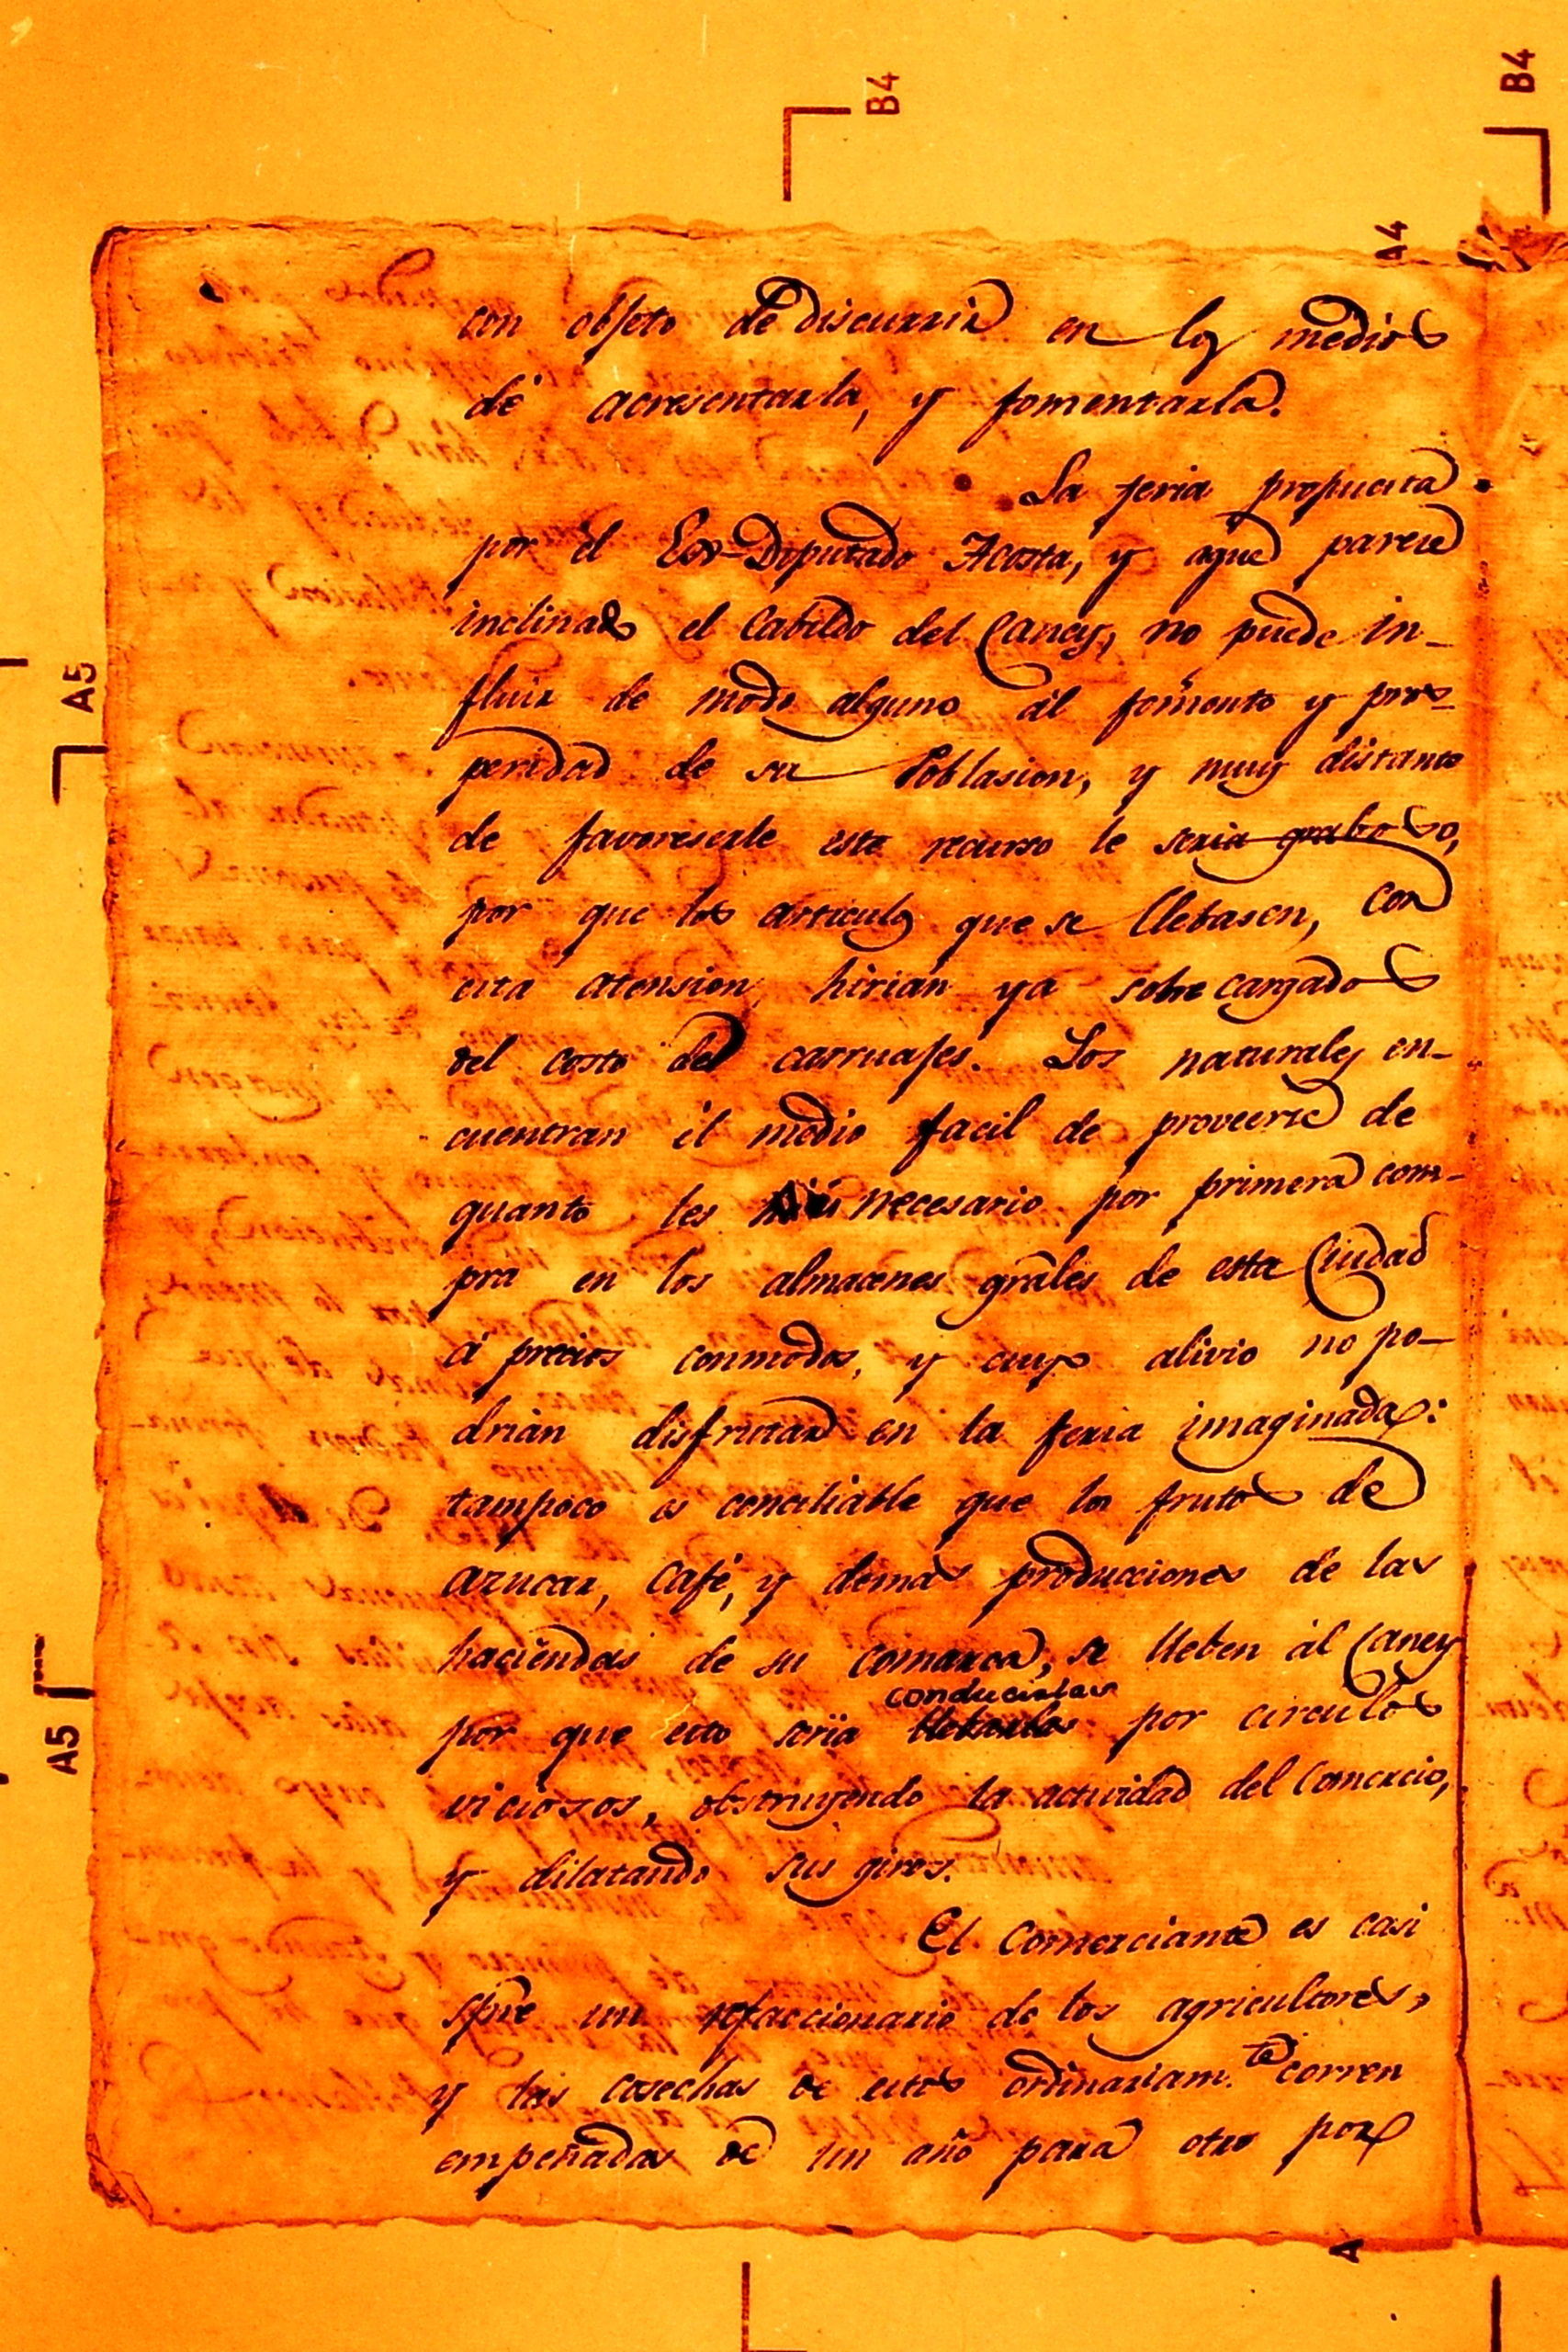 B4
B4
A4
con objeto de discurrir en los medios
de acresentarla, y fomentarla.
La feria propuesta
por el Ex-Diputado Acosta, y aque parece
inclinado el Cabildo del Caney, no puede in-
fluir de modo alguno al fomento y pros-
peridad de su Poblasion, y muy distante
de favoreserle este recurso le seria graboso,
por que los articulos que se llebasen, con
esta atension hirian ya sobre cargados
del costo de carruajes. Los naturales en-
cuentran el medio facil de proveerse de
quanto les necesario por primera com-
pra en los almacenes grales de esta Ciudad
á precios conmodos, y cuyo alivio no po-
drian disfrutar en la feria imaginada:
tampoco es conciliable que los frutos de
azucar, Café, y demas producciones de las
haciendas de su comarca, se lleben al Caney
conducirlas
por que esto seria llebarlos por circulos
viciosos, obstruyendo la actividad del Comercio,
y dilatando sus giros.
El Comerciante es casi
spre un refaccionario de los agricultores,
y las cosechas de estos ordinariam.te corren
empeñadas de un año para otro por
A5
A5